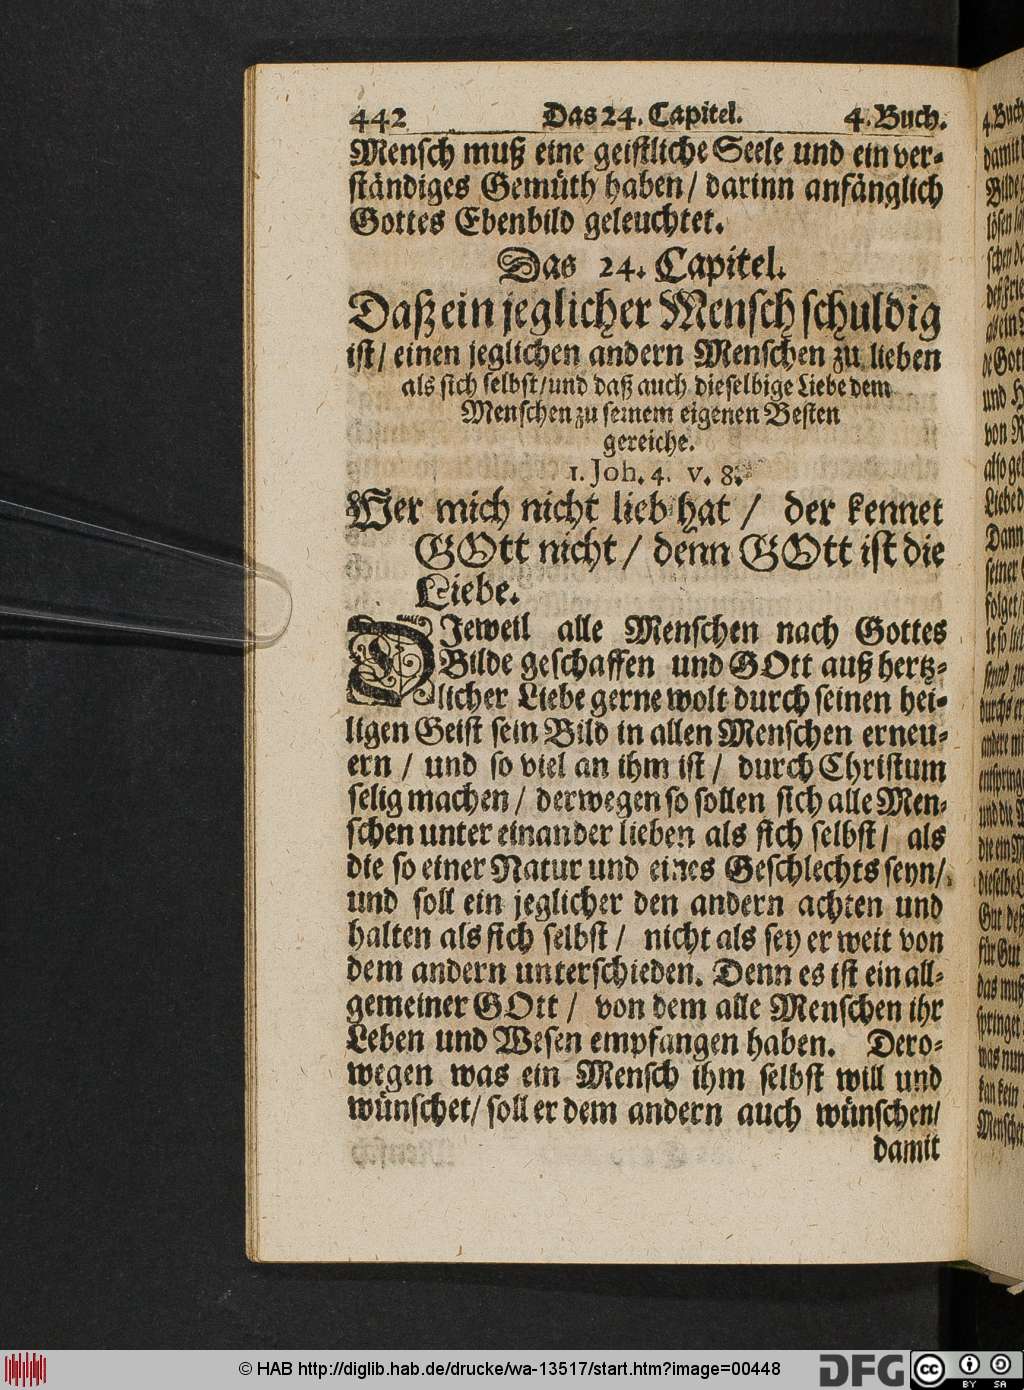 442 Das 24. Capitel. 4. Buch.
Mensch muß eine geistliche Seele und ein ver-
ständiges Gemüth haben / darinn anfänglich
Gottes Ebenbild geleuchtet.
Das 24. Capitel.
Daß ein jeglicher Mensch schuldig
ist / einen jeglichen andern Menschen zu lieben
als sich selbst / und daß auch dieselbige Liebe dem
Menschen zu seinem eigenen Besten
gereiche.
1. Joh. 4. v. 8.
Wer mich nicht lieb hat / der kennet
GOtt nicht / denn GOtt ist die
Liebe.
DJeweil alle Menschen nach Gottes
Bilde geschaffen und GOtt auß hertz-
licher Liebe gerne wolt durch seinen hei-
ligen Geist sein Bild in allen Menschen erneu-
ern / und so viel an ihm ist / durch Christum
selig machen / derwegen so sollen sich alle Men-
schen unter einander lieben als sich selbst / als
die so einer Natur und eines Geschlechts seyn /
und soll ein jeglicher den andern achten und
halten als sich selbst / nicht als sey er weit von
dem andern unterschieden. Denn es ist ein all-
gemeiner GOtt / von dem alle Menschen ihr
Leben und Wesen empfangen haben. Dero-
wegen was ein Mensch ihm selbst will und
wünschet / soll er dem andern auch wünschen /
damit
© HAB http://diglib.hab.de/drucke/wa-13517/start.htm?image=00448
DFG
cc BY SA